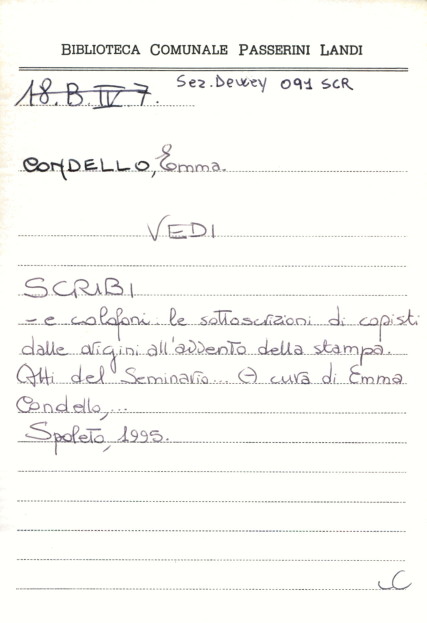 BIBLIOTECA COMUNALE PASSERINI LANDI
18.B.IV 7. Sez. Dewey 091 SCR
CONDELLO, Emma.
VEDI
SCRIBI
- e colofoni: le sottoscrizioni di copisti
dalle origini all'avvento della stampa.
Atti del Seminario... A cura di Emma
Condello,...
Spoleto, 1995.